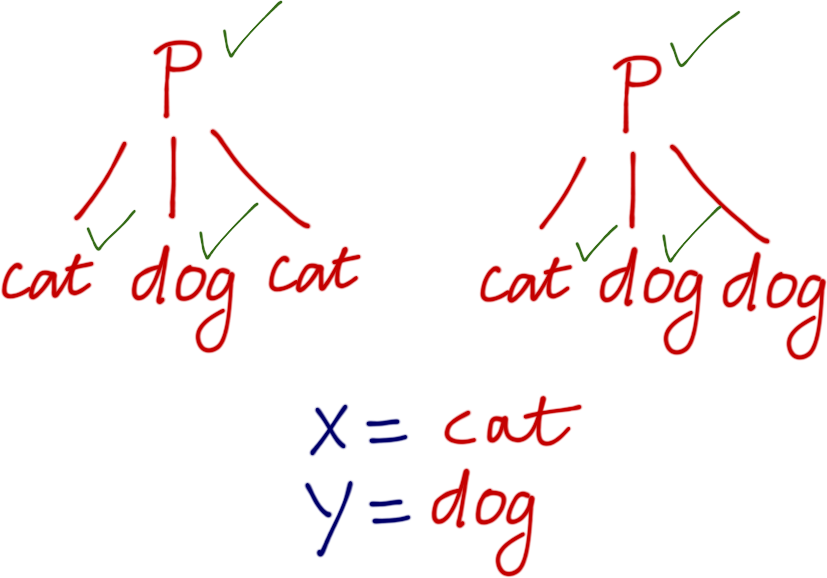 P P
cat dog cat cat dog dog
X = cat
y = dog